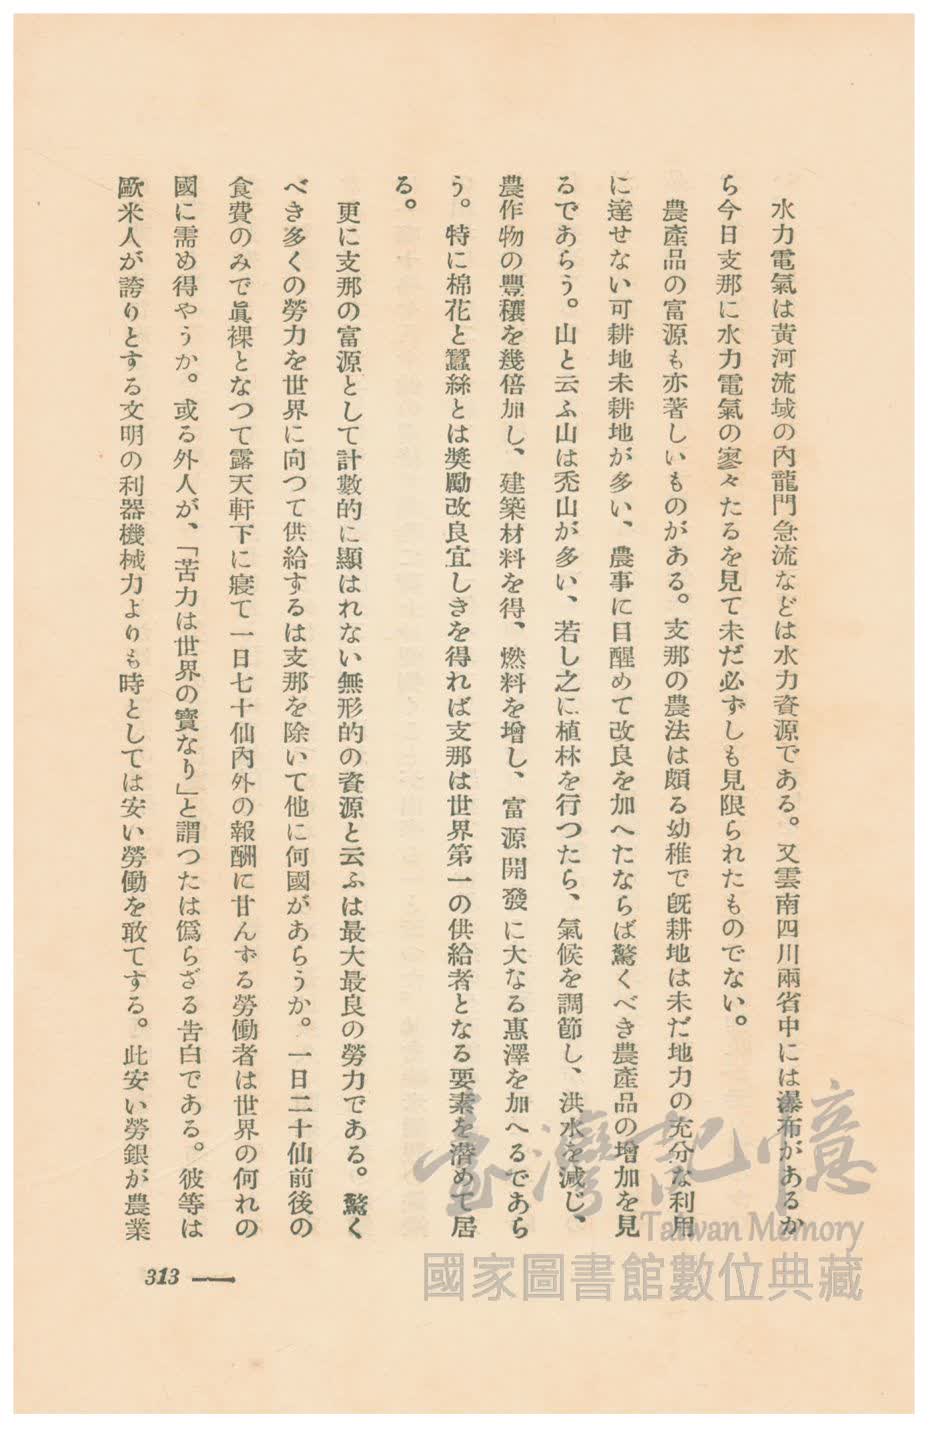 水力電氣は黃河流域の內龍門急流などは水力資源である。又雲南四川兩省中には瀑布があるか
ら今日支那に水力電氣の寥々たるを見て未だ必ずしも見限られたものでない。
農產品の富源も亦著しいものがある。支那の農法は頗る幼稚で旣耕地は未だ地力の充分な利用
に達せない可耕地未耕地が多い、農事に目醒めて改良を加へたならば驚くべき農產品の增加を見
るであらう。山と云ふ山は禿山が多い、若し之に植林を行つたら、氣候を調節し、洪水を減じ、
農作物の豐穰を幾倍加し、建築材料を得、燃料を增し、富源開發に大なる惠澤を加へるであら
う。特に棉花と蠶絲とは奬勵改良宜しきを得れば支那は世界第一の供給者となる要素を潛めて居
る。
更に支那の富源として計數的に顯はれない無形的の資源と云ふは最大最良の勞力である。驚く
べき多くの勞力を世界に向つて供給するは支那を除いて他に何國があらうか。一日二十仙前後の
食費のみで眞裸となつて露天軒下に寢て一日七十仙內外の報酬に甘んずる勞働者は世界の何れの
國に需め得やうか。或る外人が、「苦力は世界の寶なり」と謂つたは僞らざる吿白である。彼等は
歐米人が誇りとする文明の利器機械力よりも時としては安い勞働を敢てする。此安い勞銀が農業
313
臺灣記憶
Taiwan Memory
國家圖書館數位典藏